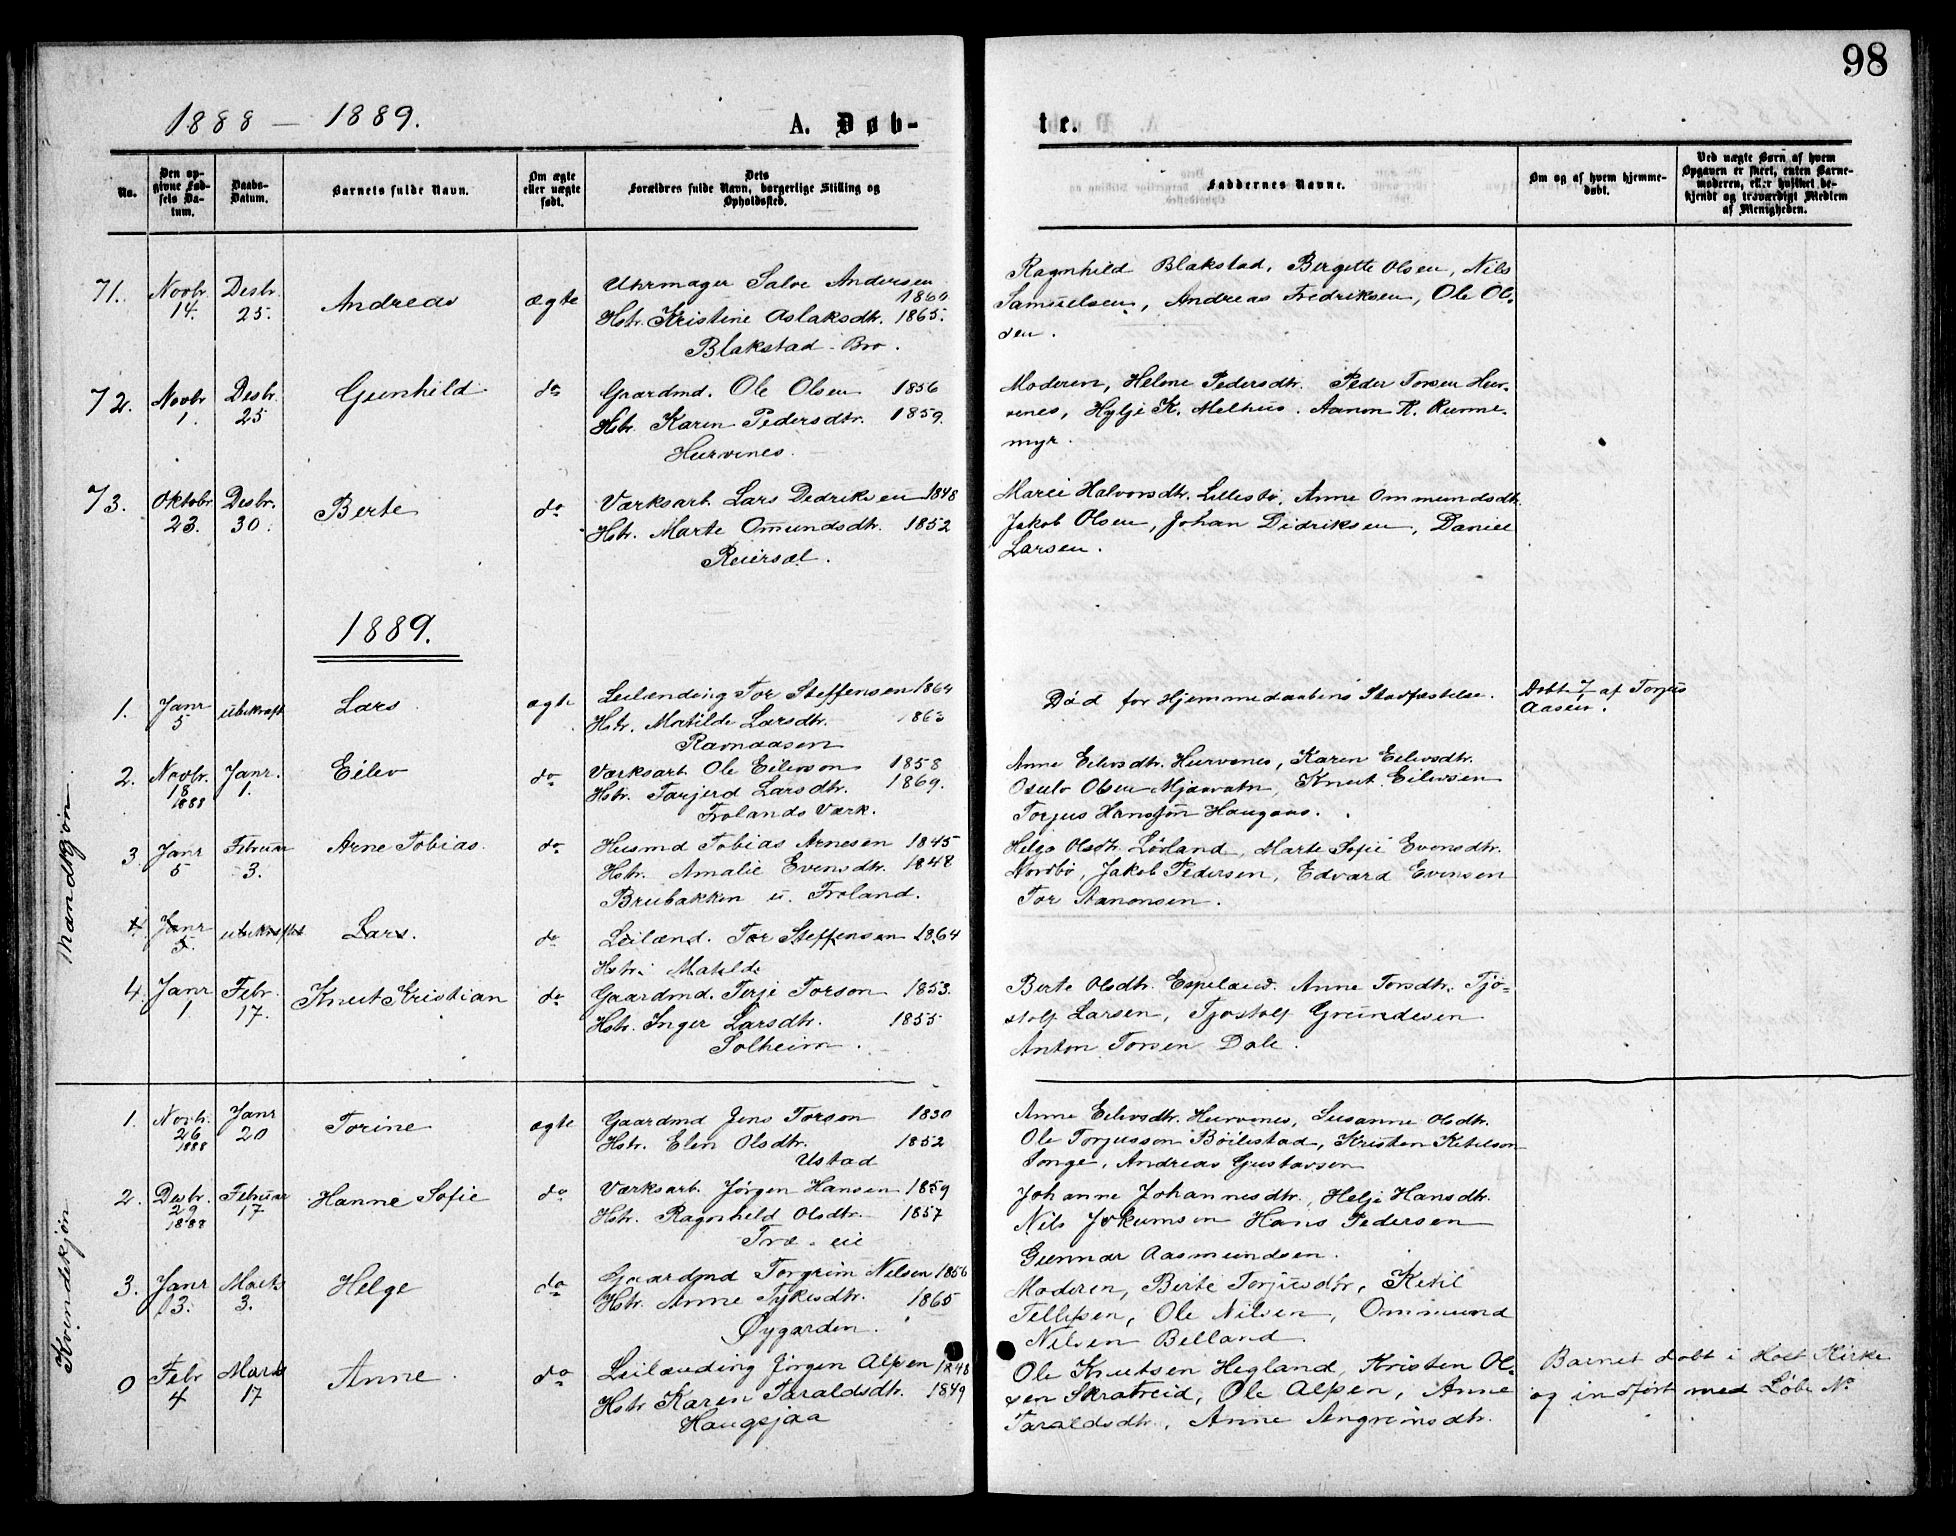 98
1888 — 1889.
A. Døb-
te.
No.
Den op-
givne Fød-
sels Da-
tum.
Daabs-
Datum.
Barnets fulde Navn.
Om ægte
eller uægte
født.
Dets
Forældres fulde Navn, borgerlige Stilling og
Opholdssted.
Faddernes Navne.
Om og af hvem hjemme-
døbt.
Ved uægte Børn af hvem
Opgaven er skeet, enten Barne-
moderen, eller hvilket be-
kjendt og troværdigt Medlem
af Menigheden.
71. Novbr. 14. Desbr. 25. Andreas ægte
Uhrmager Salve Andersen
1860
Hstr. Kristine Aslaksdtr. 1865.
Blakstad-Bro.
Ragnhild Blakstad, Bergette Olsen, Nils
Samuelsen, Andreas Fredriksen, Ole Ol-
sen.
72. Novbr 1. Desbr. 25 Gunhild do
Gaardmd. Ole Olsen 1856
Hstr. Karen Pedersdtr. 1859.
Hurvenes.
Moderen, Helene Pedersdtr. Peder Torsen Hur-
venes, Hylje K. Melhus. Aanon K. Rønne-
myr.
73. Oktobr 23. Desbr. 30. Berte do
Værksarb. Lars Dedriksen 1848
Hstr. Marte Omundsdtr. 1852
Reiersøl.
Marie Halvorsdtr. Lillestø, Anne Ommundsdtr.
Jakob Olsen, Johan Didriksen, Daniel
Larsen.
1889.
Mandkjøn.
1. Janr 5 ubekræft Lars ægte
Leilænding Tor Steffensen 1864
Hstr. Matilde Larsdtr. 1863
Ravnaasen
Død før Hjemmedaabens Stadfæstelse.
Døbt 7/1 af Torjus
Aasen.
2. Novbr. 18 1888 Janr. 1. Eilev do
Værksarb. Ole Eilevson 1858
Hstr. Tarjerd Larsdtr. 1869.
Frolands Værk.
Anne Eilevsdtr. Hurvenes, Karen Eilevsdtr.
Osulv Olsen Mjaavatn, Knut Eilevsen
Torjus Hansson Haugaas.
3. Janr 5 Februar 3. Arne Tobias. do
Husmd Tobias Arnesen 1845
Hstr. Amalie Evensdtr. 1848
Brubakken u. Froland.
Helje Olsdtr. Løvland, Marte Sofie Evensdtr.
Nordbø, Jakob Pedersen, Edvard Evensen
Tor Aanonsen.
4 Janr 5. ubekræftet Lars. do
Leilænd. Tor Steffensen 1864
Hstr. Matilde
4. Janr 1 Febr. 17. Knut Kristian do
Gaardmd. Terje Torson 1853.
Hstr. Inger Larsdtr. 1855
Solheim.
Berte Olsdtr. Espeland. Anne Torsdtr. Tjø-
stolf Larsen, Tjostolf Gundesen
Anton Torsen Dale.
Kvindekjøn
1. Novbr. 26 1888 Janr 20 Torine ægte
Gaardmd Jens Torson 1830
Hstr. Elen Olsdtr. 1852
Ustad
Anne Eilevsdtr. Hurvenes, Susanne Olsdtr.
Ole Torjusson Bøilestad, Kristen Ketilson
Songe, Andreas Gustavsen
2. Desbr. 29 1888 Februar 17 Hanne Sofie do
Værksarb. Jørgen Hansen 1859
Hstr. Ragnhild Olsdtr. 1857
Træ-eie
Johanne Johannesdtr., Helje Hansdtr.
Nils Jokumsen Hans Pedersen
Gunnar Aasmundsen.
3. Janr 13. Marts 3. Helge do
Gaardmd Torgrim Nilsen 1856
Hstr. Anne Tykesdtr. 1865
Øygarden.
Moderen, Berte Torjusdtr, Ketil
Tellefsen, Ole Nilsen, Ommund
Nilsen Belland.
0 Febr 4 Marts 17 Anne do
Leilænding Jørgen Alfsen 1848
Hstr Karen Taraldsdtr. 1849
Haugsjaa
Ole Knutsen Hegland, Kristen Ol-
sen Skratreid, Ole Alfsen, Anne
Taraldsdtr., Anne Angrimsdtr.
Barnet døbt i Holt Kirke
og indført med Løbe No